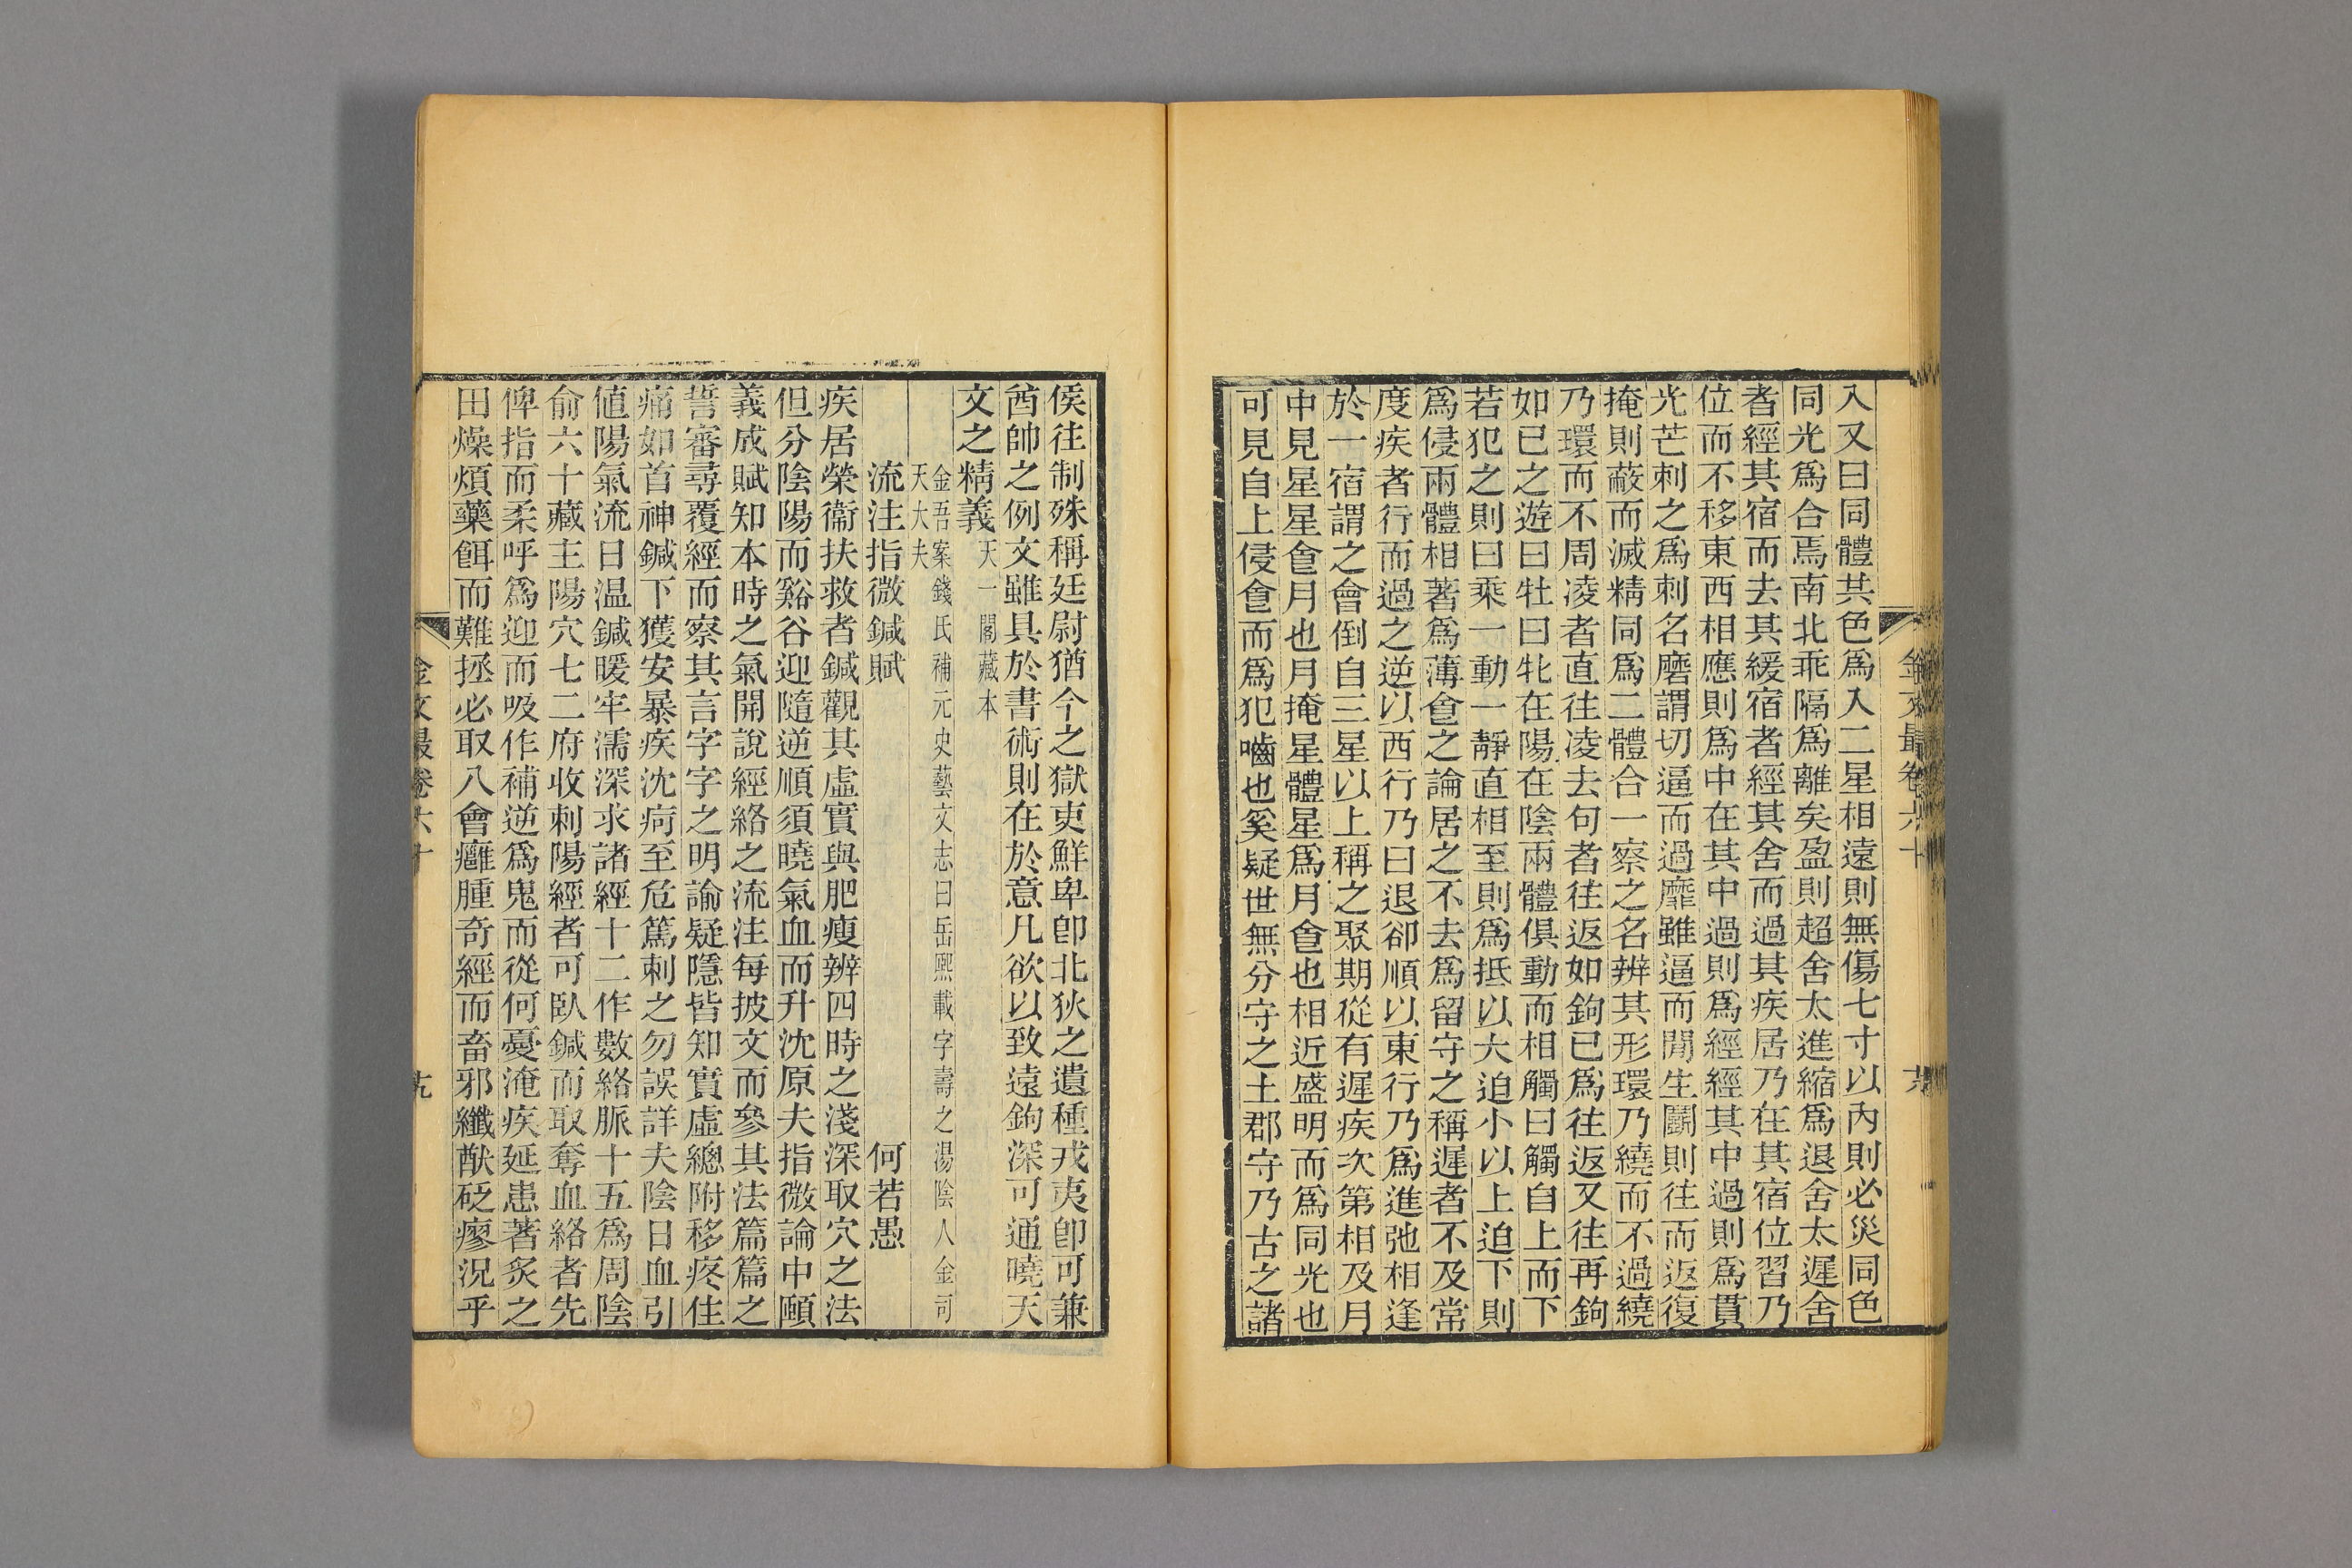 入又曰同體其色爲入二星相遠則無傷七寸以內則必災同色
同光爲合焉南北乖隔爲離矣盈則超舍太進縮爲退舍太遲舍
者經其宿而去其緩宿者經其舍而過其疾居乃在其宿位習乃
位而不移東西相應則爲中在其中過則爲經經其中過則爲貫
光芒刺之爲刺名磨謂切逼而過靡雖逼而閒生鬭則往而返復
掩則蔽而滅精同爲二體合一察之名辨其形環乃繞而不過繞
乃環而不周凌者直往凌去句者往返如鉤已爲往返又往再鉤
如已之遊曰牡曰牝在陽在陰兩體俱動而相觸曰觸自上而下
若犯之則曰乘一動一靜直相至則爲抵以大迫小以上迫下則
爲侵兩體相著爲薄㑹之論居之不去爲留守之稱遲者不及常
度疾者行而過之逆以西行乃曰退卻順以東行乃爲進弛相逢
於一宿謂之會倒自三星以上稱之聚期從有遲疾次第相及月
中見星星㑹月也月掩星體星爲月㑹也相近盛明而爲同光也
可見自上侵㑹而爲犯嚙也奚疑世無分守之土郡守乃古之諸
金文最卷六十
侯往制殊稱廷尉猶今之獄吏鮮卑卽北狄之遺種戎夷卽可兼
酋帥之例文雖具於書術則在於意凡欲以致遠鉤深可通曉天
文之精義 天一閣藏本
金吾案錢氏補元史藝文志曰岳熙載字壽之湯陰人金司
天大夫
流注指微鍼賦 何若愚
疾居榮衞扶救者鍼觀其虛實與肥瘦辨四時之淺深取穴之法
但分陰陽而谿谷迎隨逆順須曉氣血而升沈原夫指微論中賾
義成賦知本時之氣開說經絡之流注每披文而參其法篇篇之
誓審尋覆經而察其言字字之明諭疑隱皆知實虛總附移疼住
痛如首神鍼下獲安暴疾沈疴至危篤刺之勿誤詳夫陰日血引
値陽氣流日温鍼暖牢濡深求諸經十二作數絡脈十五爲周陰
俞六十藏主陽穴七二府收刺陽經者可臥鍼而取奪血絡者先
俾指而柔呼爲迎而吸作補逆爲鬼而從何憂淹疾延患著炙之
田燥煩藥餌而難拯必取八會癰腫奇經而畜邪纖猷砭瘳況乎
金文最卷六十